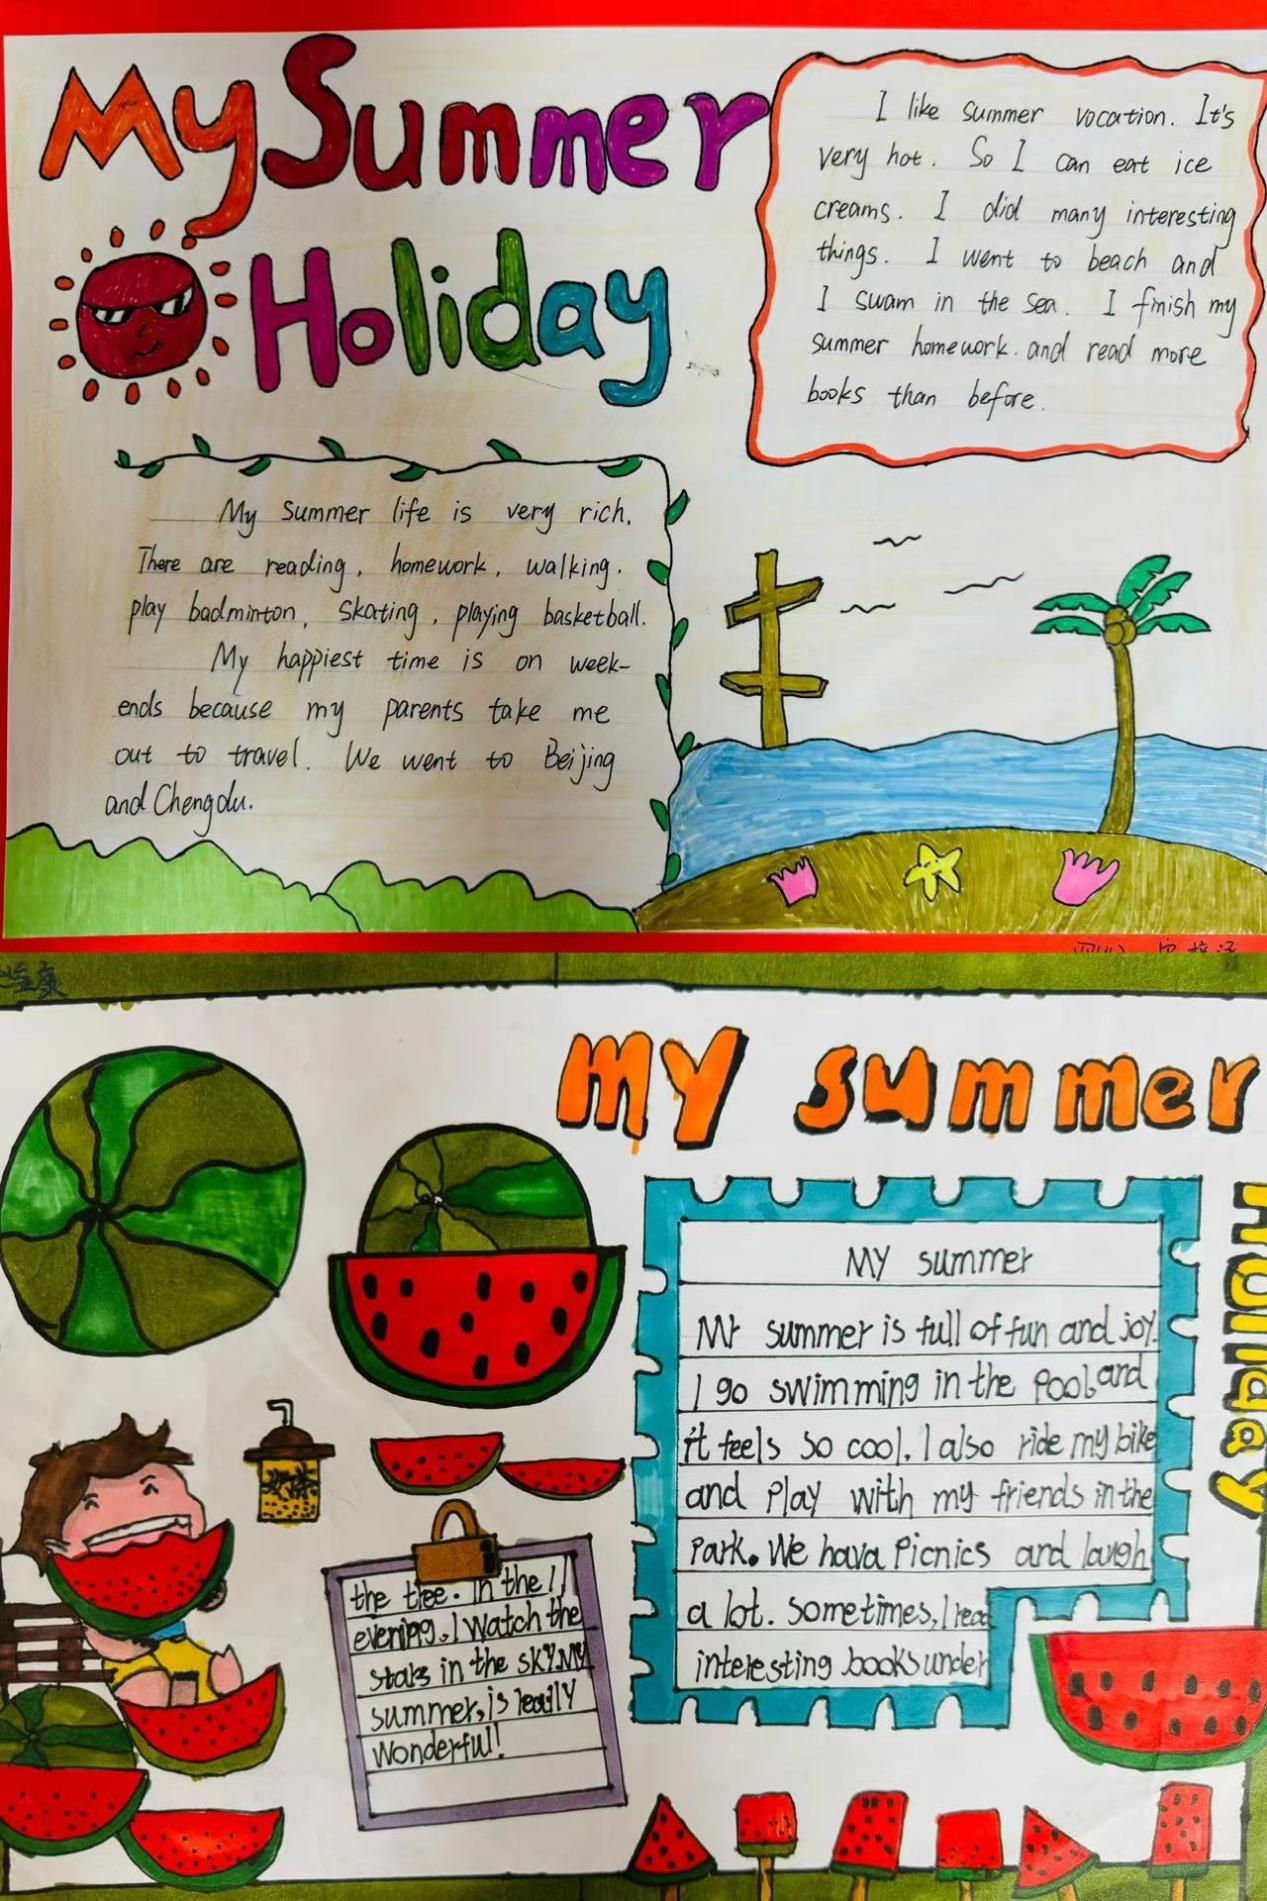 My Summer
Holiday
I like summer vocation. It's
very hot. So I can eat ice
creams. I did many interesting
things. I went to beach and
I swam in the sea. I finish my
summer homework. and read more
books than before.
My summer life is very rich.
There are reading, homework, walking.
play badminton, skating, playing basketball.
My happiest time is on week-
ends because my parents take me
out to travel. We went to Beijing
and Chengdu.
MY summer
Holiday
MY summer
My summer is full of fun and joy.
I go swimming in the pool, and
it feels so cool. I also ride my bike
and play with my friends in the
Park. We hava Picnics and laugh
a lot. sometimes, I read
interesting books under
the tree. In the
evening, I watch the
stars in the sky. My
summer, is really
wonderful!